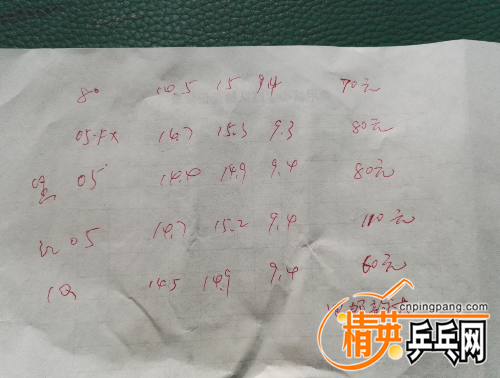 80 14.5 15 9.4 70元
05.FX 14.7 15.3 9.3 80元
黑 05 14.4 14.9 9.4 80元
红 05 14.7 15.2 9.4 110元
1Q 14.5 14.9 9.4 60元
cnpingpang.com
精英乒乓网